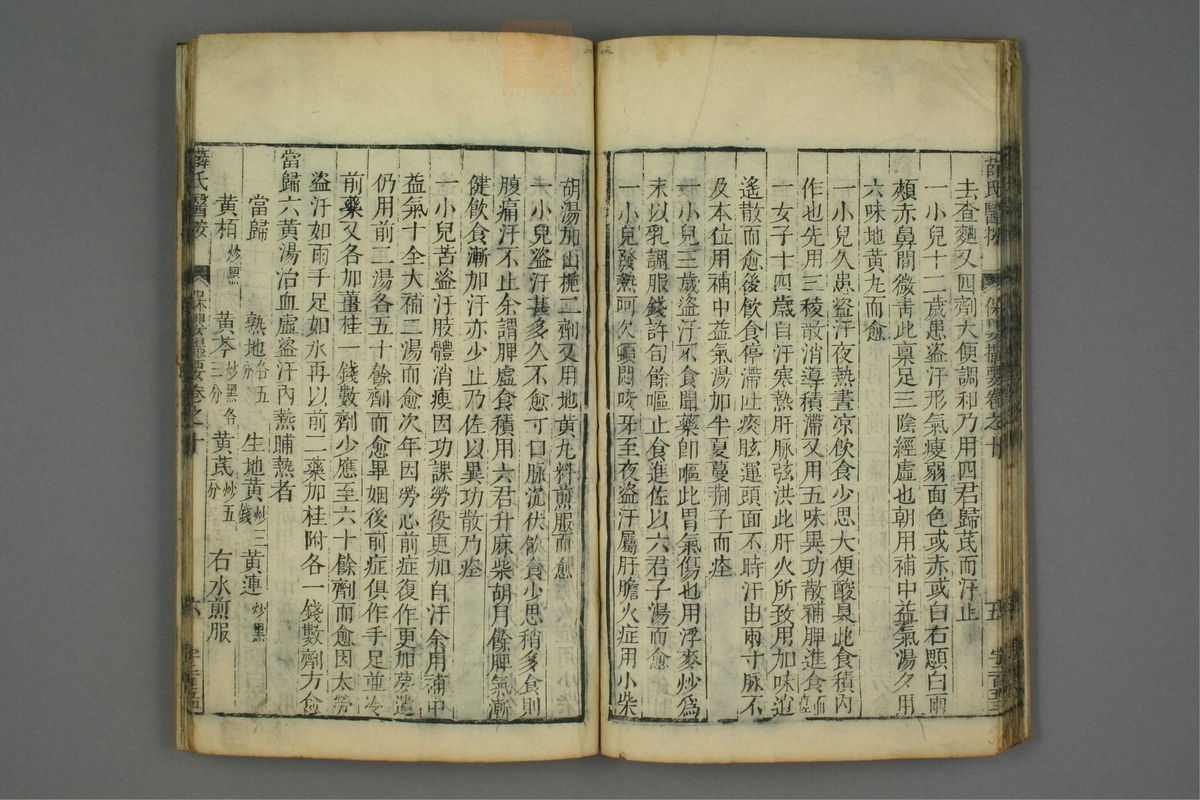 薛氏醫按 保嬰撮要卷之十 五
主查麯又四劑大便調和乃用四君歸芪而汗止
一小兒十二歲患盜汗形氣瘦弱面色或赤或白右顋白兩
頰赤鼻間微青此稟足三陰經虛也朝用補中益氣湯夕用
六味地黃丸而愈
一小兒久患盜汗夜熱晝凉飲食少思大便酸臭此食積內
作也先用三稜散消導積滯又用五味異功散補脾進食而痊
一女子十四歲自汗寒熱肝脉弦洪此肝火所致用加味逍
遙散而愈後飲食停滯吐痰眩運頭面不時汗出兩寸脉不
及本位用補中益氣湯加半夏蔓荆子而痊
一小兒三歲盜汗不食聞藥卽嘔此胃氣傷也用浮麥炒爲
末以乳調服錢許旬餘嘔止食進佐以六君子湯而愈
一小兒發熱呵欠頓悶咬牙至夜盜汗屬肝膽火症用小柴
胡湯加山梔二劑又用地黃丸料煎服而愈
一小兒盜汗甚多久不愈寸口脉沉伏飲食少思稍多食則
腹痛汗不止余謂脾虛食積用六君升麻柴胡月餘脾氣漸
健飲食漸加汗亦少止乃佐以異功散乃痊
一小兒苦盜汗肢體消瘦因功課勞役更加自汗余用補中
益氣十全大補二湯而愈次年因勞心前症復作更加夢遺
仍用前二湯各五十餘劑而愈畢姻後前症俱作手足並冷
前藥又各加薑桂一錢數劑少應至六十餘劑而愈因太勞
盜汗如雨手足如氷再以前二藥加桂附各一錢數劑方愈
當歸六黃湯治血虛盜汗內熱晡熱者
當歸 熟地各五分 生地黃炒三錢 黃連炒黑
黃栢炒黑 黃芩炒黑各三分 黃芪炒五分 右水煎服
薛氏醫按 保嬰撮要卷之十 六